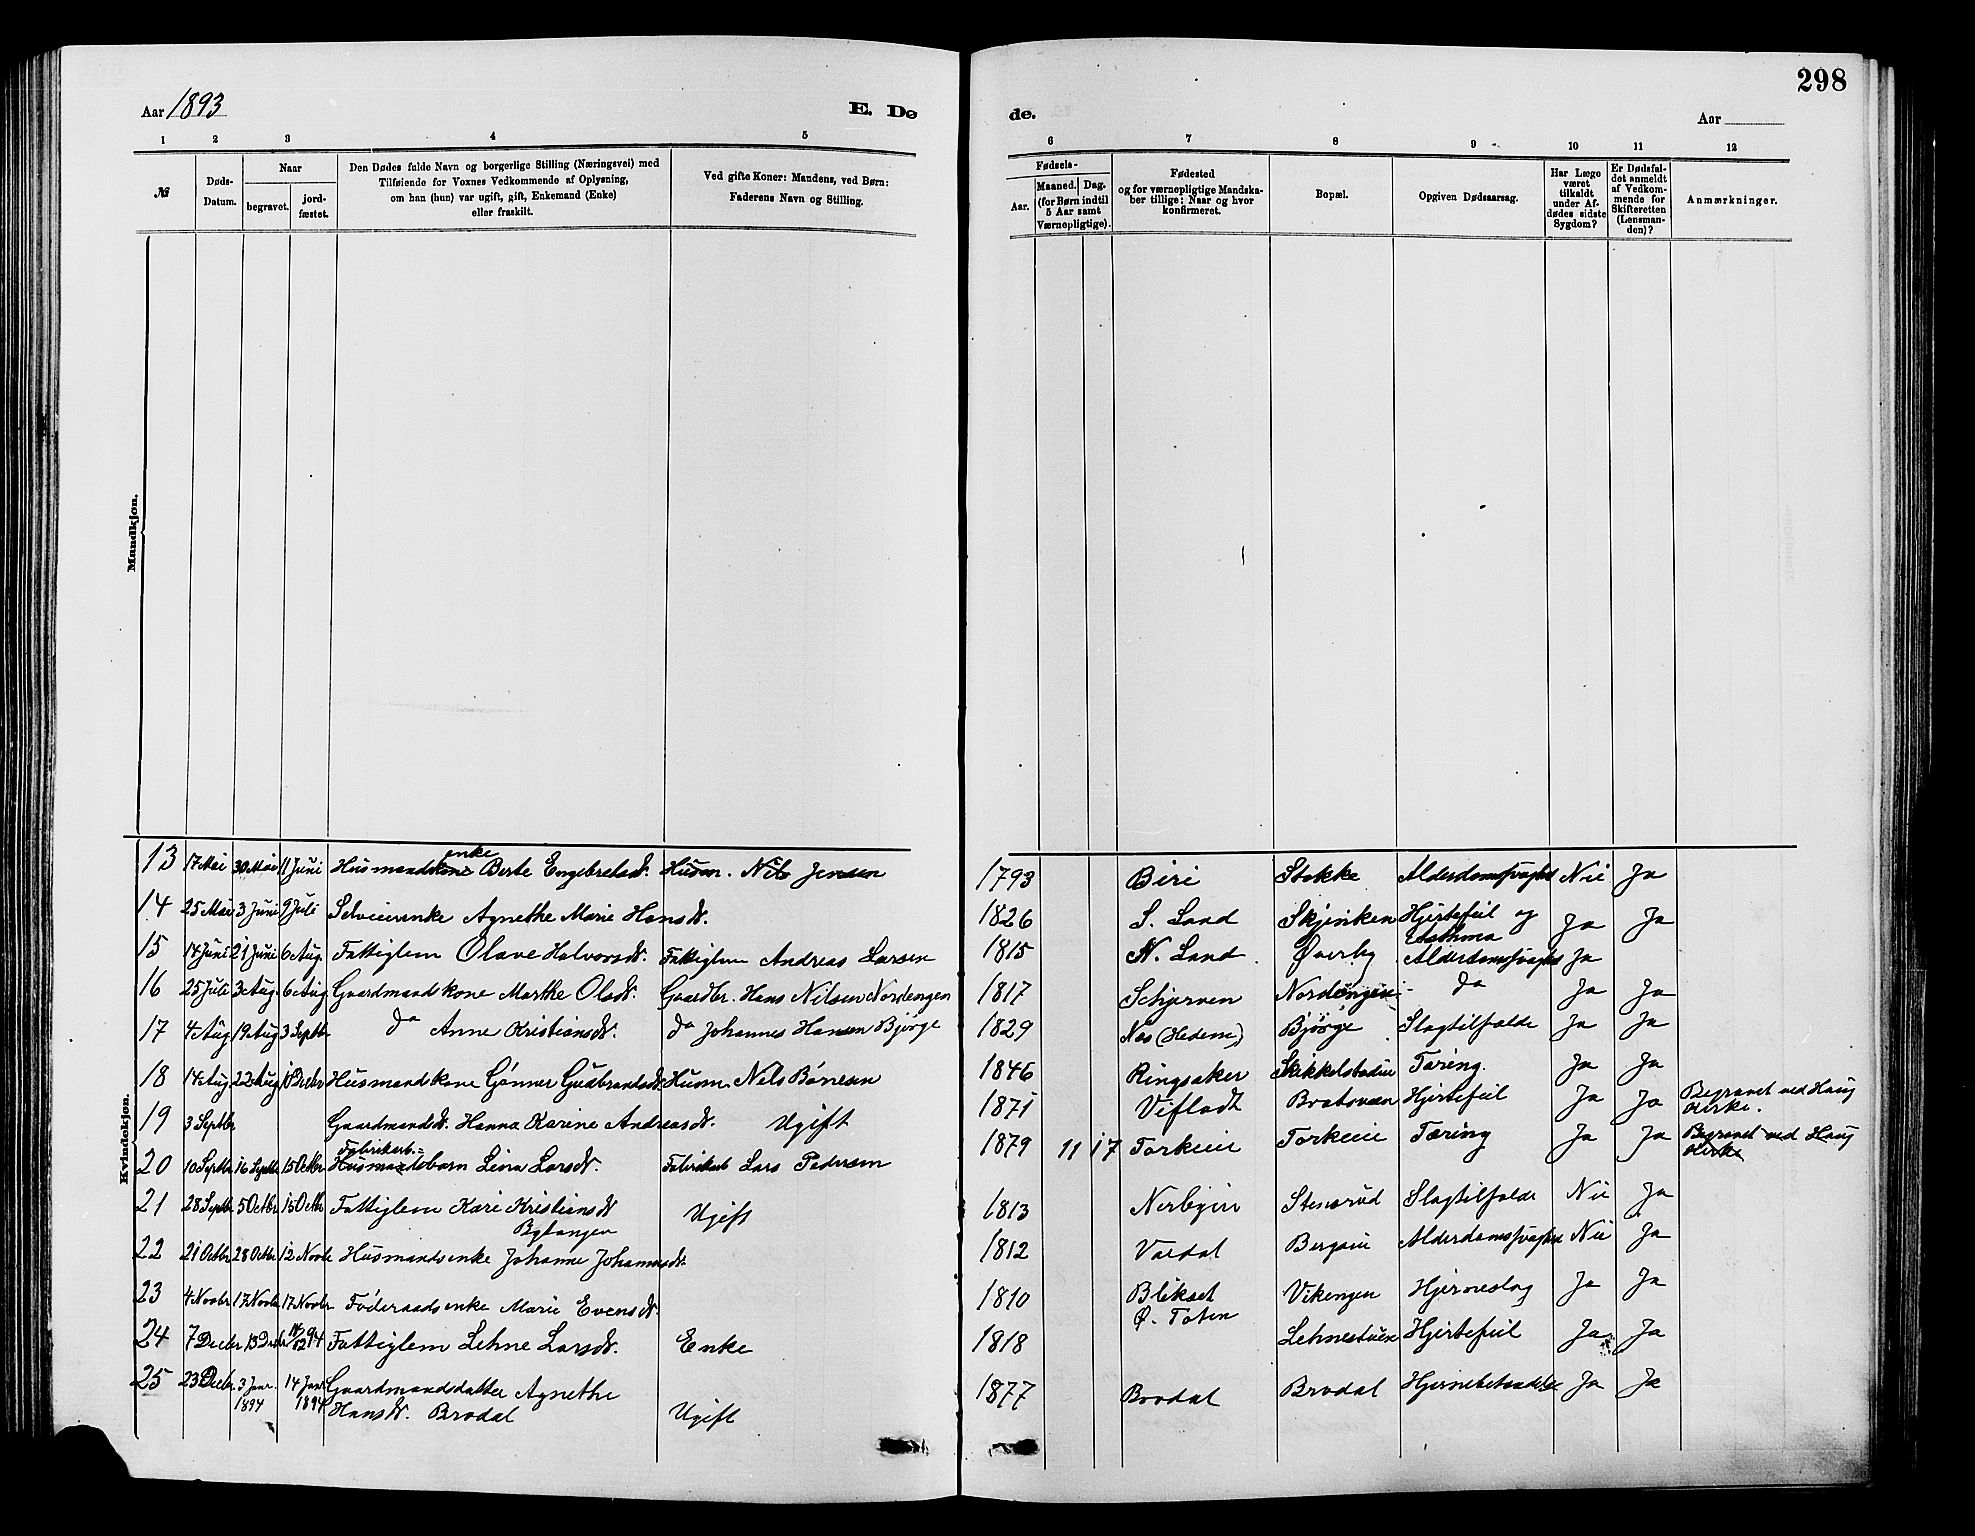 298
Aar 1893
E. Dø
de.
Aar
1 2 3 4 5
6 7 8 9 10 11 12
№
Døds-
Datum.
Naar
begravet.
jord-
fæstet.
Den Dødes fulde Navn og borgerlige Stilling (Næringsvei) med
Tilføiende for Voxnes Vedkommende af Oplysning,
om han (hun) var ugift, gift, Enkemand (Enke)
eller fraskilt.
Ved gifte Koner: Mandens, ved Børn:
Faderens Navn og Stilling.
Fødsels-
Aar.
Maaned. Dag.
(for Børn indtil
5 Aar samt
Værnepligtige).
Fødested
og for værnepligtige Mandska-
ber tillige: Naar og hvor
konfirmeret.
Bopæl.
Opgiven Dødsaarsag.
Har Læge
været
tilkaldt
under Af-
dødes sidste
Sygdom?
Er Dødsfal-
det anmeldt
af Vedkom-
mende for
Skifteretten
(Lensman-
den)?
Anmærkninger.
Mandkjøn.
Kvindekjøn.
enke
13 17 Mai 30 Mai 11 Juni Husmandskone Berte Engebretsdt. Husm. Nils Jensen 1793 Biri Stokke Alderdomssvaghed Nei Ja
14 25 Mai 3 Juni 9 Juli Selveierenke Agnethe Marie Hansdt. 1826 S. Land Skjeriken Hjertefeil og Ja Ja
Asthma
15 14 Juni 21 Juni 6 Aug. Fattiglem Olave Halvorsdt. Fattiglem Andreas Larsen 1815 N. Land Øverby Alderdomssvaghed Ja
16 25 Juli 3 Aug. 6 Aug Gaardmandskone Marthe Olsdt. Gaardbr. Hans Nilsen Nordengen 1817 Schjerven Nordengen do Ja Ja
17 4 Aug 19 Aug 3 Septbr do Anne Kristiansdt. do Johannes Hansen Bjørge 1829 Næs (Hedem) Bjørge Slagtilfælde Ja Ja
18 14 Aug 22 Aug 10 Decbr Husmandskone Gønner Gudbrandsdt. Husm. Nils Børresen 1846 Ringsaker Skikkelstadeie Tæring. Ja Ja
19 3 Septbr Gaardmandsdt. Hanna Karine Andreasdt. Ugift 1871 Vifladt Bratoveen Hjertefeil Ja Ja Begravet ved Haug
Kirke.
Fabrikarb.-
20 10 Septbr 16 Septbr 15 Octbr Husmandsbarn Lina Larsdt. Fabrikarb Lars Pedersen 1879 11 17 Torkeie Torkeie Tæring Ja Ja Begravet ved Haug
Kirke
21 28 Septbr 5 Octbr 15 Octbr Fattiglem Kari Kristiansdt Ugift 1813 Nerbyen Stensrud Slagtilfælde Nei Ja
Bytangen
22 21 Octbr 28 Octbr 12 Novbr Husmandsenke Johanne Johannesdt. 1812 Vardal Bergseie Alderdomssvaghed Nei Ja
23 4 Novbr 17 Novbr 17 Novbr Føderaadsenke Marie Evensdt 1810 Blikset Vikengen Hjerneslag Ja Ja
Ø. Toten
24 7 Decbr 13 Decbr Fattiglem Lehne Larsdt. Enke 1818 Lehnestuen Hjertefeil Ja Ja
25 23 Decbr. 3 Janr. 14 Janr Gaardmandsdatter Agnethe 1877 Brodal Brodal Hjernebetændelse Ja Ja
1894 1894 Hansdt. Brodal Ugift